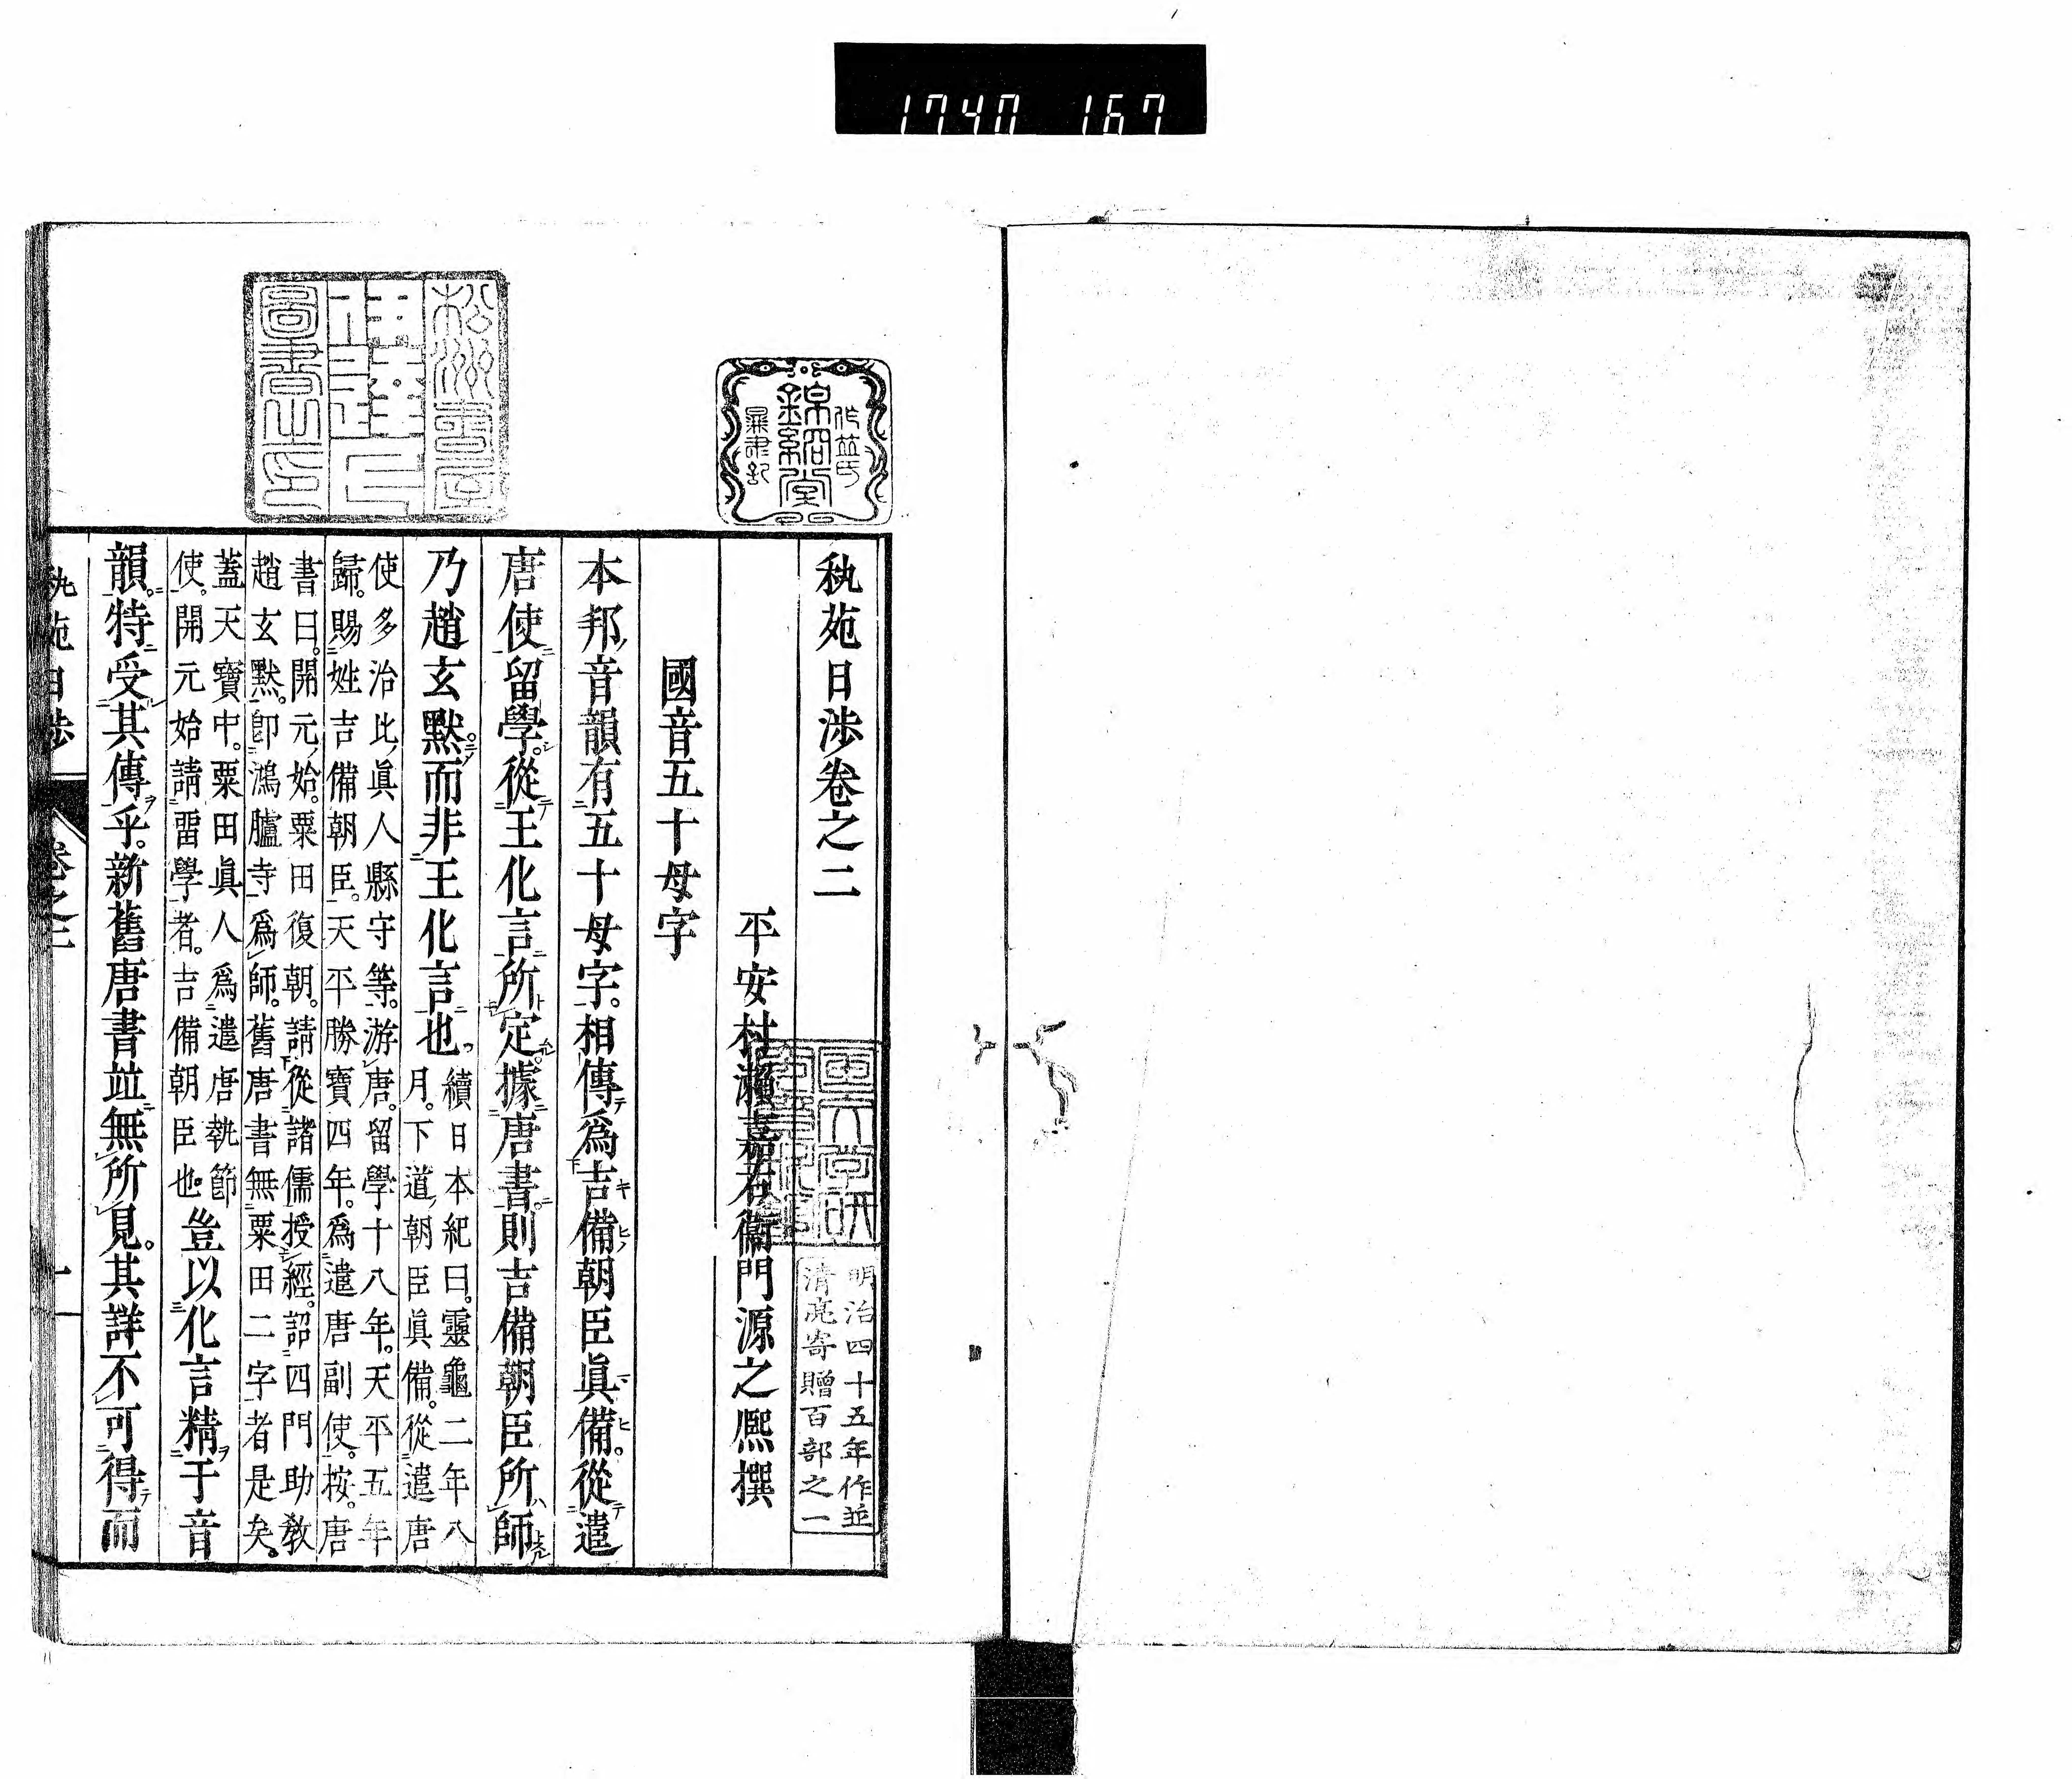 1740 167
秇苑日渉卷之二
平安村瀨嘉右衞門源之熈撰
國音五十母字
本邦音韻有五十母字。相傳爲吉備朝臣眞備。從遣
唐使留學。從王化言所定。據唐書。則吉備朝臣所師
乃趙玄默。而非王化言也。
續日本紀曰。靈龜二年八
月。下道朝臣眞備。從遣唐
使多治比眞人縣守等。游唐。留學十八年。天平五年
歸。賜姓吉備朝臣。天平勝寶四年。爲遣唐副使。按。唐
書曰。開元始。粟田復朝。請從諸儒授經。詔四門助敎
趙玄默。卽鴻臚寺爲師。舊唐書無粟田二字者是矣。
蓋天寶中。粟田眞人爲遣唐執節
使。開元始請留學者。吉備朝臣也。
豈以化言精于音
韻。特受其傳乎。新舊唐書竝無所見。其詳不可得而
秇苑日渉
卷之二
一
錦窠堂
作並氏
圖書之印
明治四十五年作並
清亮寄贈百部之一